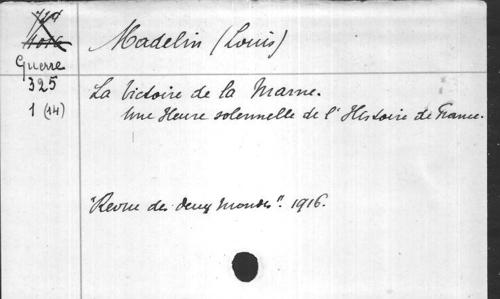 Guerre
325
1 (14)
Madelin (Louis)
La Victoire de la Marne.
Une Heure solennelle de l'Histoire de France.
"Revue des deux mondes". 1916.